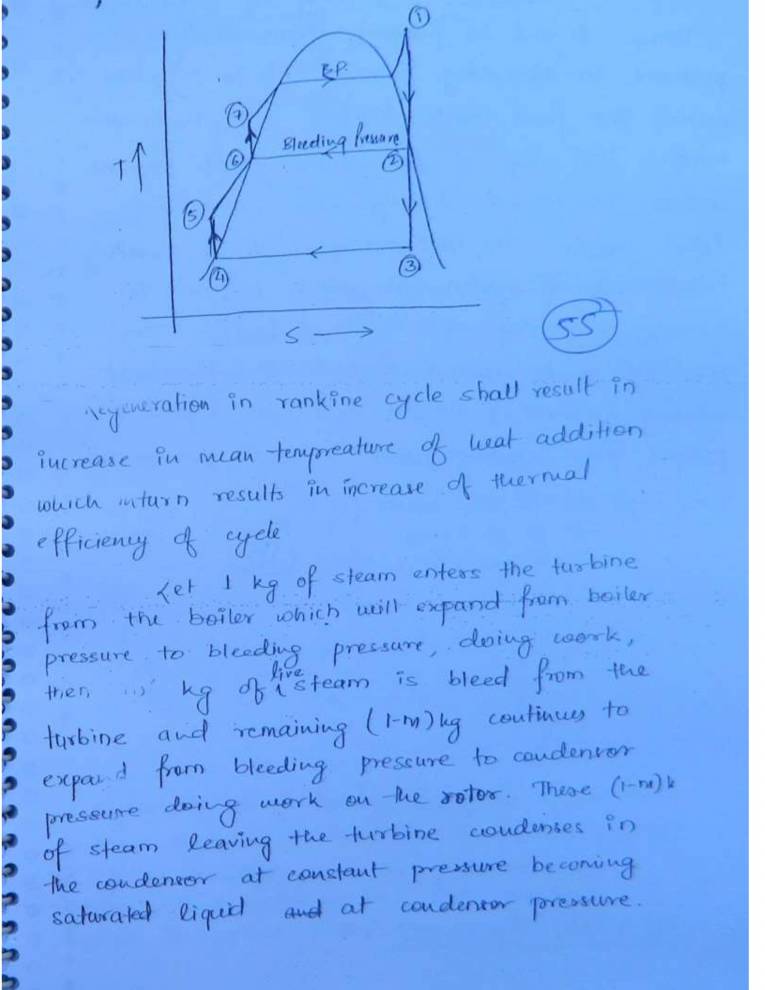 ①
B.P.
⑦
Bleeding Pressure
T↑
⑥
②
⑤
④
③
S →
55
regeneration in rankine cycle shall result in
increase in mean tempreature of heat addition
which inturn results in increase of thermal
efficiency of cycle
Let 1 kg of steam enters the turbine
from the boiler which will expand from boiler
pressure to bleeding pressure, doing work,
then kg of live steam is bleed from the
turbine and remaining (1-m) kg continues to
expand from bleeding pressure to condensor
pressure doing work on the rotor. These (1-m) k
of steam leaving the turbine condenses in
the condensor at constant pressure becoming
saturated liquid and at condensor pressure.